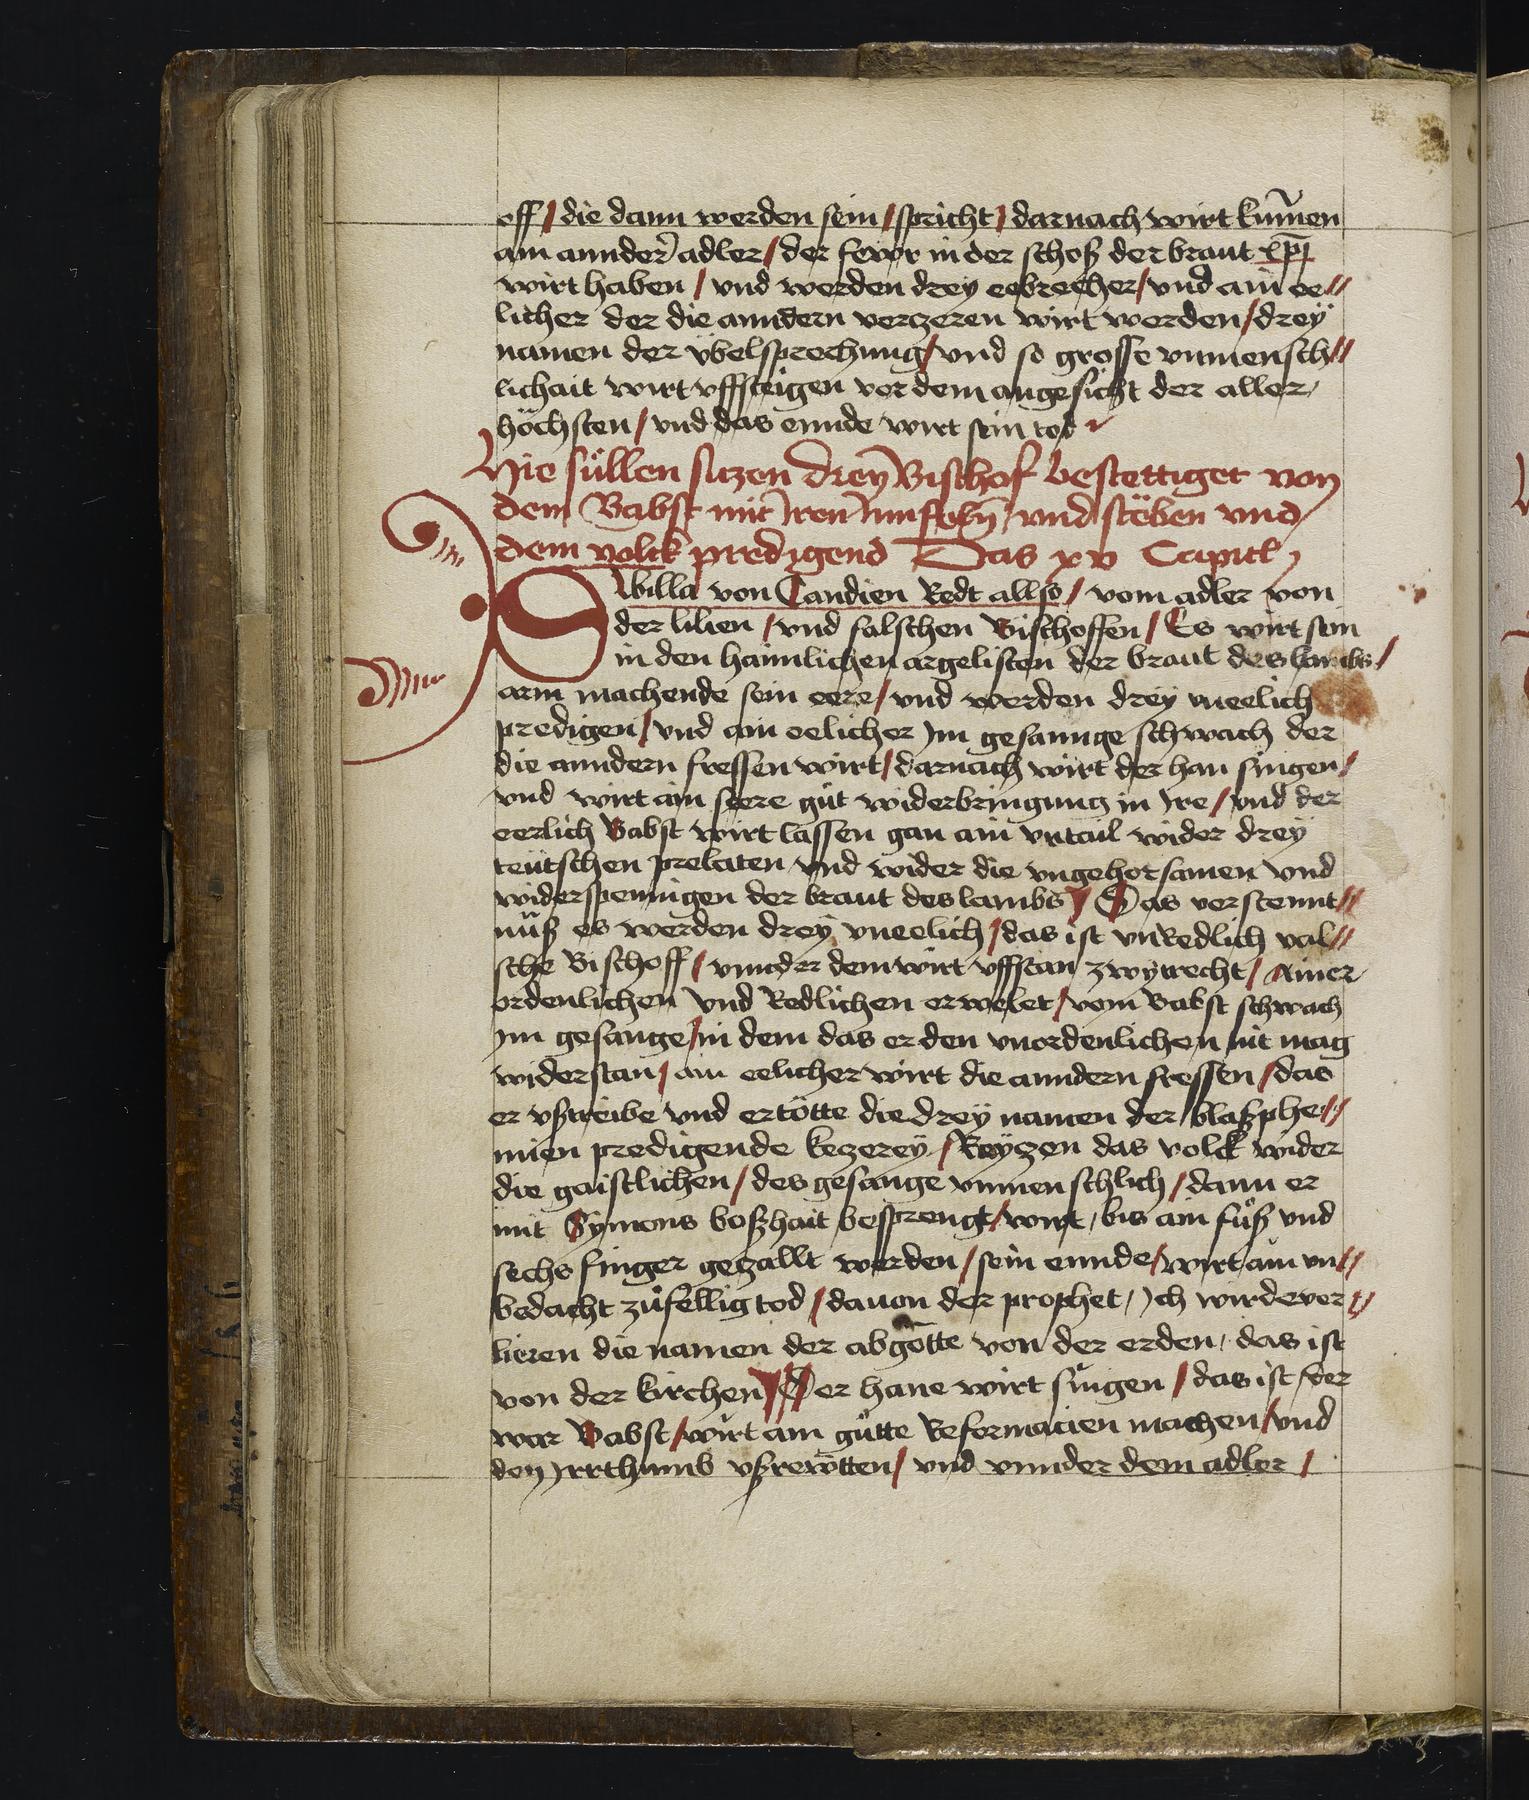 off / die dann werden sein / spricht / darnach wirt kum̄en
ain annder̄ adler / der fewr in der schoß der braut xp̄i
wirt haben / vnd werden drey eebrecher / vnd ain ee//
licher der die anndern verzeren wirt werden / drey
namen der v̈belsprechung / vnd so grosse vnmensch//
lichait wirt vffsteigen vor dem angesicht der aller
höchsten / vnd das ennde wirt sein tod
Hie süllen sitzen drey Bischof bestettiget von
dem Babst mit Iren Innfeln̄ vnd stëben vnd
dem volck predigend Das xv Capitl
SIbilla von Candien Redt allso / vom adler von
der lilien / vnd falschen Bischoffen / Es wirt sein
in den haimlichen argelisten der braut des lambs /
arm machende sein eere / vnd werden drey vneelich
predigen / vnd ain eelicher Im gesannge schwach der
die anndern fressen wirt / darnach wirt der han singen /
vnd wirt ain seere gůt widerbringung in Ire / vnd der
eerlich Babst wirt lassen gan ain vrtail wider drey
teütschen prelaten vnd wider die vngehorsamen vnd
widerspennigen der braut des lambs / Das verstennt//
nüß es werden drey vneelich / das ist vnRedlich val//
sche Bischoff / vnnder dem wirt vffstan zwytrecht / Ainer
ordenlichen vnd Redlichen erwelet / vom Babst schwach
Im gesange / in dem das er den vnordenlichen nit mag
widerstan / ain eelicher wirt die anndern fressen / das
er vßtreibe vnd ertötte die drey namen der blaßphe//
mien predigende kezerey / Reyzen das volck wider
die gaistlichen / des gesange vnmenschlich / dann er
mit Symons boßhait besprengt / wirt / bis ain fůß vnd
sechs finger gezallt werden / sein ennde / wirt ain vn//
bedacht zůfellig tod / dauon der prophet / Ich wirde ver//
lieren die namen der abgötte von der erden / das ist
von der kirchen // Der hane wirt singen / das ist / der
war Babst / wirt ain gůtte Reformacien machen / vnd
den Irrthumb vßrewtten / vnd vnnder dem adler /